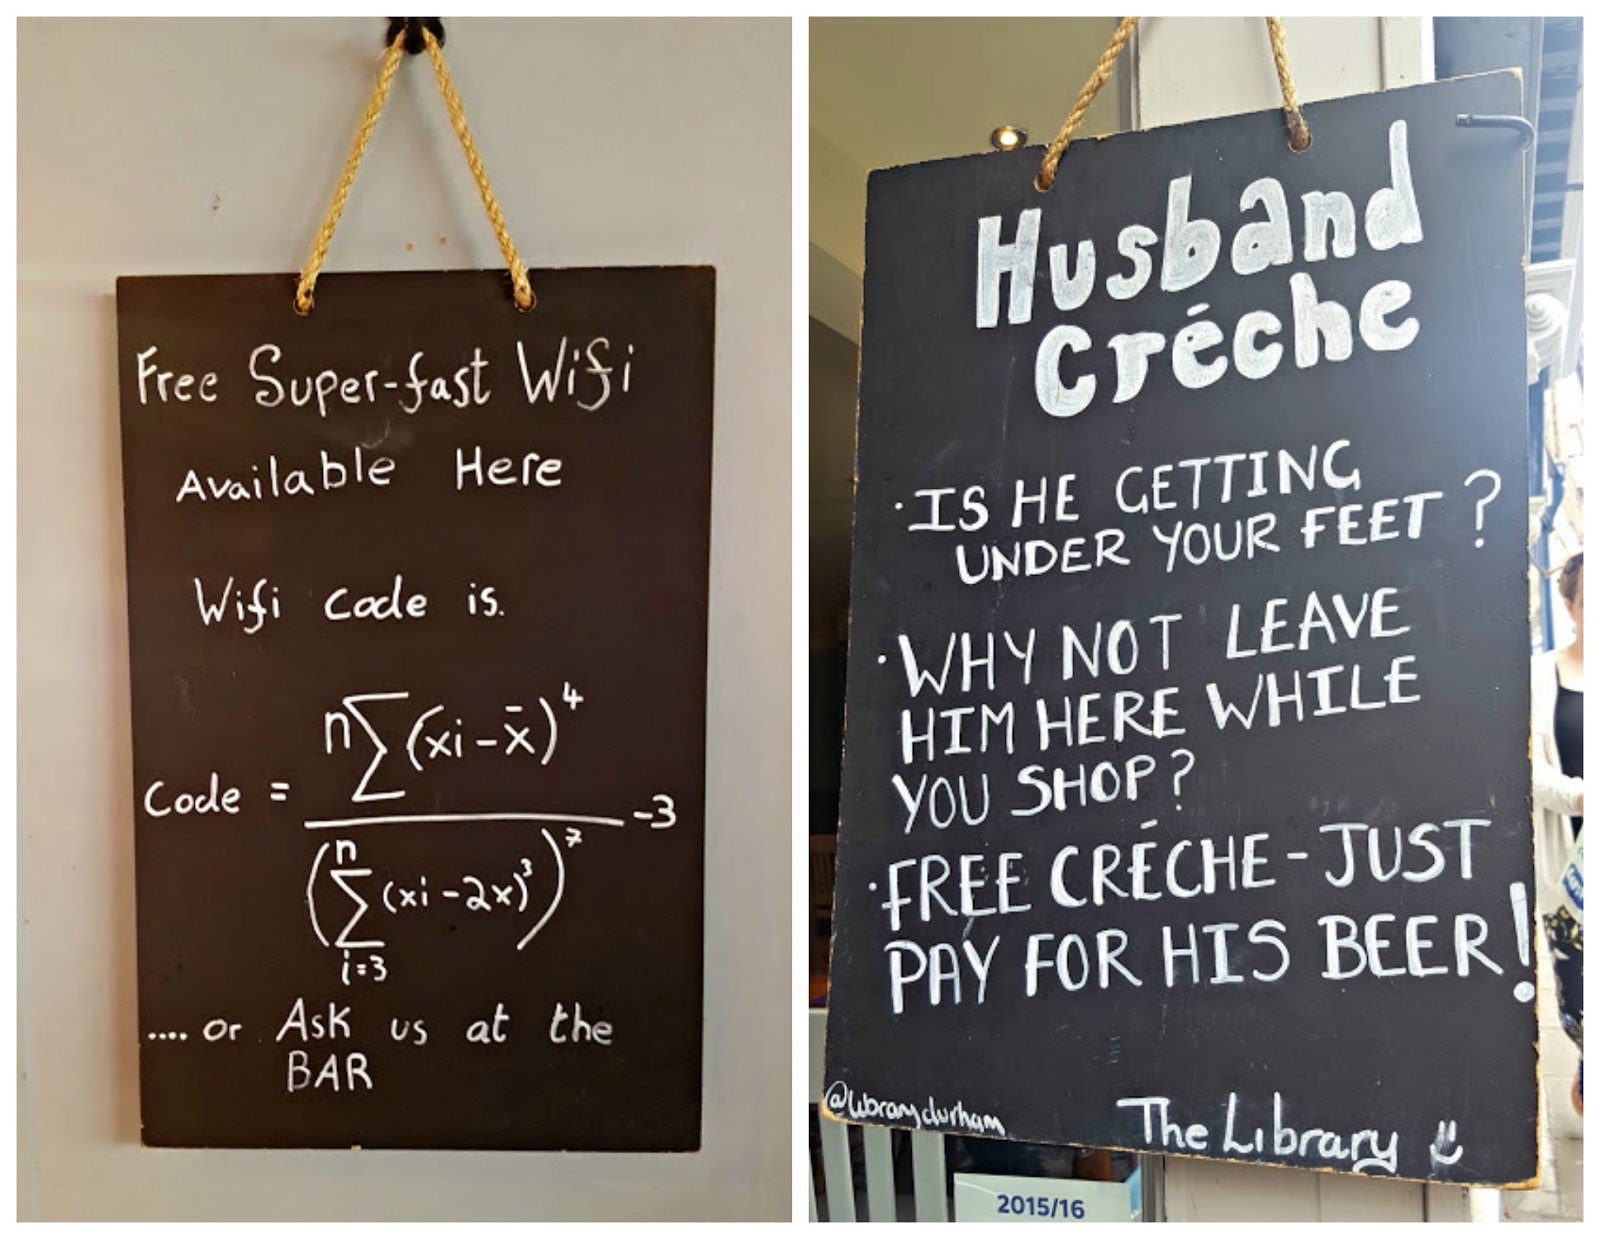 Free Super-fast Wifi
Available Here
Wifi code is.
Code = n∑(xi - x̄)⁴ / (n∑i=3 (xi - 2x)³)⁷ - 3
.... or Ask us at the
BAR
Husband
Créche
· IS HE GETTING
UNDER YOUR FEET?
· WHY NOT LEAVE
HIM HERE WHILE
YOU SHOP?
· FREE CRÉCHE - JUST
PAY FOR HIS BEER!
@librarydurham
The Library
2015/16